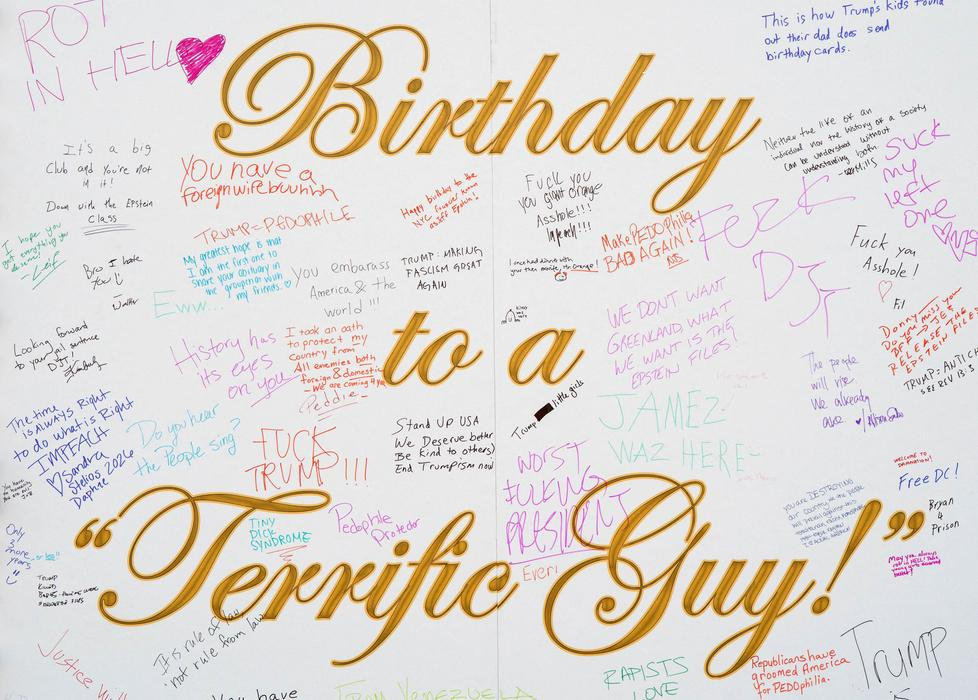 ROT
IN HELL
This is how Trump's kids found
out their dad does send
birthday cards.
Birthday
It's a big
Club and You're not
in it!
Down with the Epstein
class
You have a
foreign wife buuhhh
Happy birthday to the
Fuck you
you giant orange
Asshole!!!
Neither the life of an
individual nor the history of a society
can be understood without
understanding both.
Suck
my
left
one
I hope you
get everything you
deserve!
TRUMP=PEDOPHILE
Make PEDOphilia
BAD AGAIN!
My greatest hope is that
I am the first to
share your obituary in
the groupchat with
my friends.
Bro I hate
You
you embarass
America & the
world !!!
TRUMP: MAKING
FASCISM GREAT
AGAIN
Fuck you
Asshole!
Eww...
DJ
Looking forward
to your jail sentence
DJT!
History has
its eyes
on you
I took an oath
to protect my
Country from
All enemies both
foreign & domestic
- We are coming 4 you
Peddie
to a
WE DONT WANT
GREENLAND WHAT
WE WANT IS THE
EPSTEIN FILES!
Donny-
Do you miss your
BFF → JEF
RELEASE THE
EPSTEIN
TRUMP=ANTICH
SEE REV 13:3
The people
will rise.
We already
are.
Trump little girls
The time
is Always Right
to do what is Right
IMPEACH
Sandra
Stelios 2026
Daphne
Do you hear
the People sing?
FUCK
TRUMP!!!
Stand Up USA
We Deserve better
Be kind to others)
End Trumpism now
JAMEZ
WAZ HERE-
WORST
FUCKING
PRESIDENT
Ever!
WELCOME TO
DAMNATION!
Free DC!
Bryan
4
Prison
you are DESTROYING
our country
Only
3
more
years
"Terrific Guy!"
TINY
DICK
SYNDROME
Pedophile
Protector
TRUMP
It is rule of law
not rule from law
Justice
You have
VENEZUELA
RAPISTS
LOVE
Republicans have
groomed America
for PEDOphilia.
TRUMP